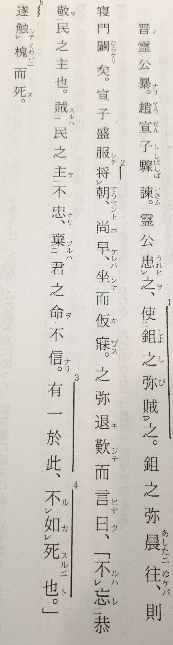 晋霊公暴。趙宣子驟諫。霊公患之、使鉏之弥賊之。鉏之弥晨往、則
寝門闢矣。宣子盛服将朝、尚早、坐而仮寐。之弥退歎而言曰、「不忘恭
敬民之主也。賊民之主不忠、棄君之命不信。有一於此、不如死也。」
遂触槐而死。